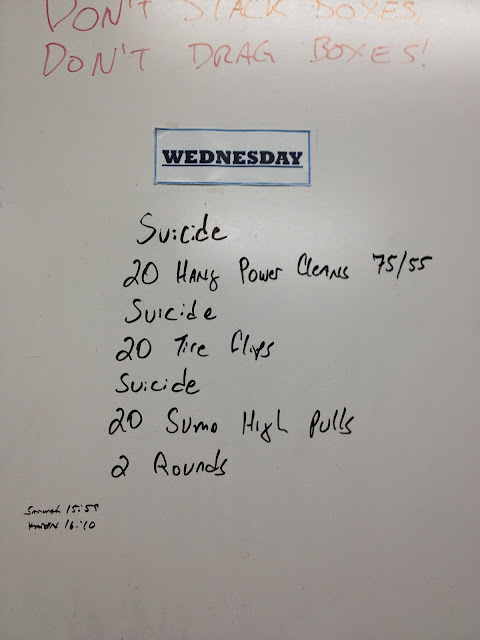 DON'T STACK BOXES,
DON'T DRAG BOXES!
WEDNESDAY
Suicide
20 HANG Power Cleans 75/55
Suicide
20 Tire Flips
Suicide
20 Sumo High Pulls
2 Rounds
15:55
16:10